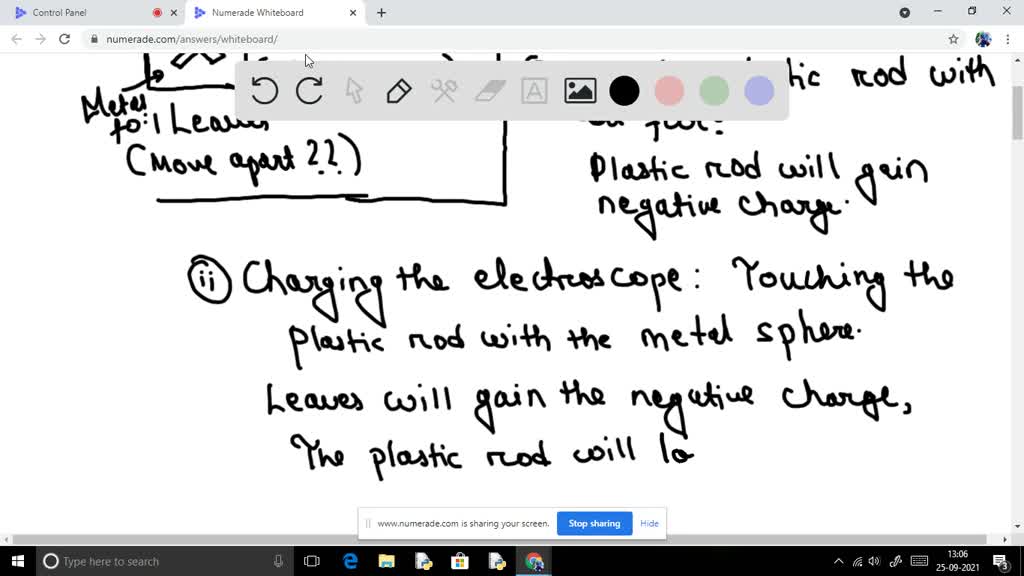 Control Panel
Numerade Whiteboard
numerade.com/answers/whiteboard/
rod with
Metal
foil Leaves
(Move apart ??)
Plastic rod will gain
negative charge.
(ii) Charging the electroscope: Touching the
plastic rod with the metal sphere.
Leaves will gain the negative charge,
The plastic rod will lo
www.numerade.com is sharing your screen.
Stop sharing
Hide
Type here to search
13:06
25-09-2021
3